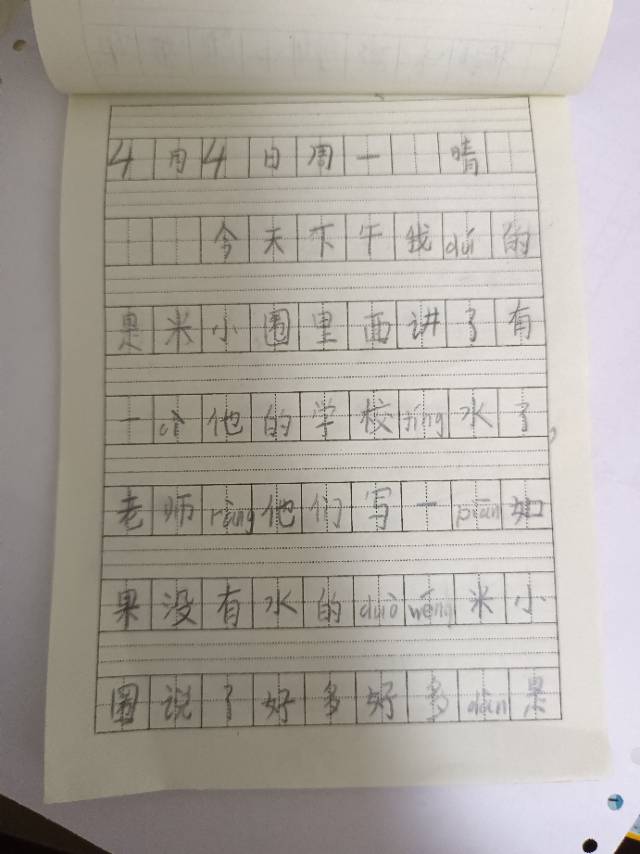 4月4日周一 晴
今天下午我dú的
是米小圈里面讲了有
一cì他的学校tíng水了,
老师ràng他们写一piān如
果没有水的duìo wéng米小
圈说了好多好多dàn是